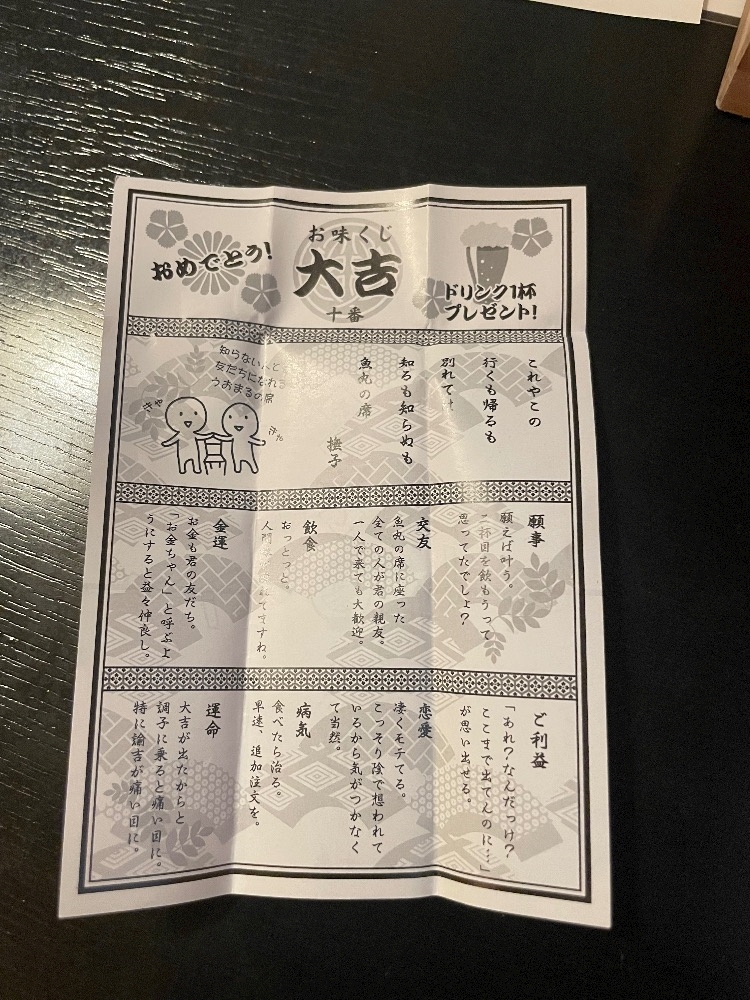 おめでとう!
お味くじ
大吉
十番
ドリンク1杯
プレゼント!
これやこの
行くも帰るも
別れては
知るも知らぬも
魚丸の席
撫子
知らない人と
友だちになれる
うおまるの席
願事
願えば叶う。
二杯目を飲もうって
思ってたでしょ?
交友
魚丸の席に座った
全ての人が君の親友。
一人で来ても大歓迎。
飲食
おっとっと。
人間
てますね。
金運
お金も君の友だち。
「お金ちゃん」と呼ぶよ
うにすると益々仲良し。
ご利益
「あれ?なんだっけ?
ここまで出てんのに…」
が思い出せる。
恋愛
凄くモテてる。
こっそり陰で想われて
いるから気がつかなく
て当然。
病気
食べたら治る。
早速、追加注文を。
運命
大吉が出たからと
調子に乗ると痛い目に。
特に諭吉が痛い目に。